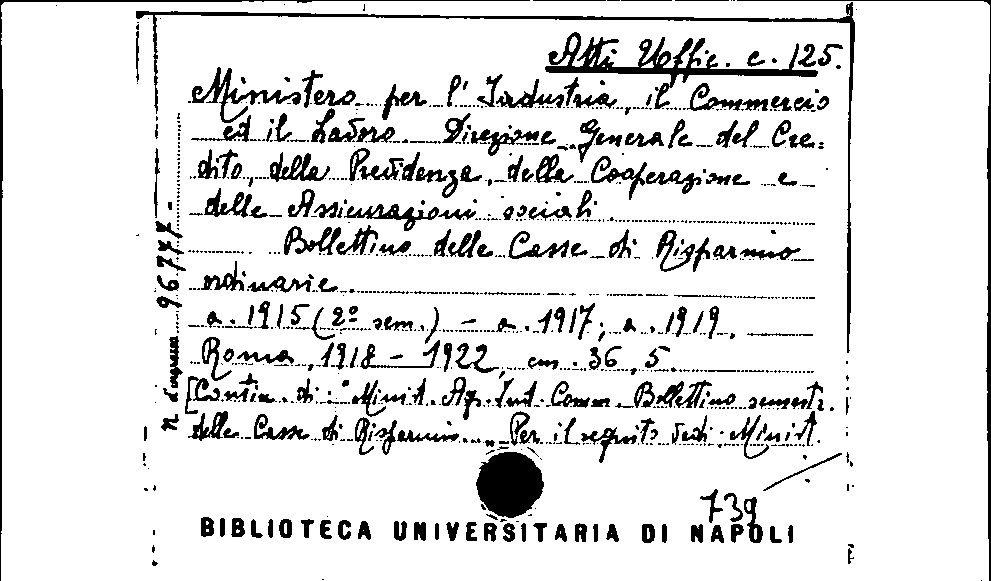 Atti Uffic. c. 125.
Ministero per l' Industria, il Commercio
ed il Lavoro. Direzione Generale del Cre=
dito, della Previdenza, della Cooperazione e
delle Assicurazioni sociali.
Bollettino delle Casse di Risparmio
ordinarie.
a. 1915 (2º sem.) - a. 1917; a. 1919.
Roma, 1918 - 1922, cm. 36,5.
[Contin. di: "Minist. Agr. Ind. Comm. Bollettino semestr.
delle Casse di Risparmio..." Per il seguito vedi: Minist.
n d'ingresso 96777-
739
BIBLIOTECA UNIVERSITARIA DI NAPOLI